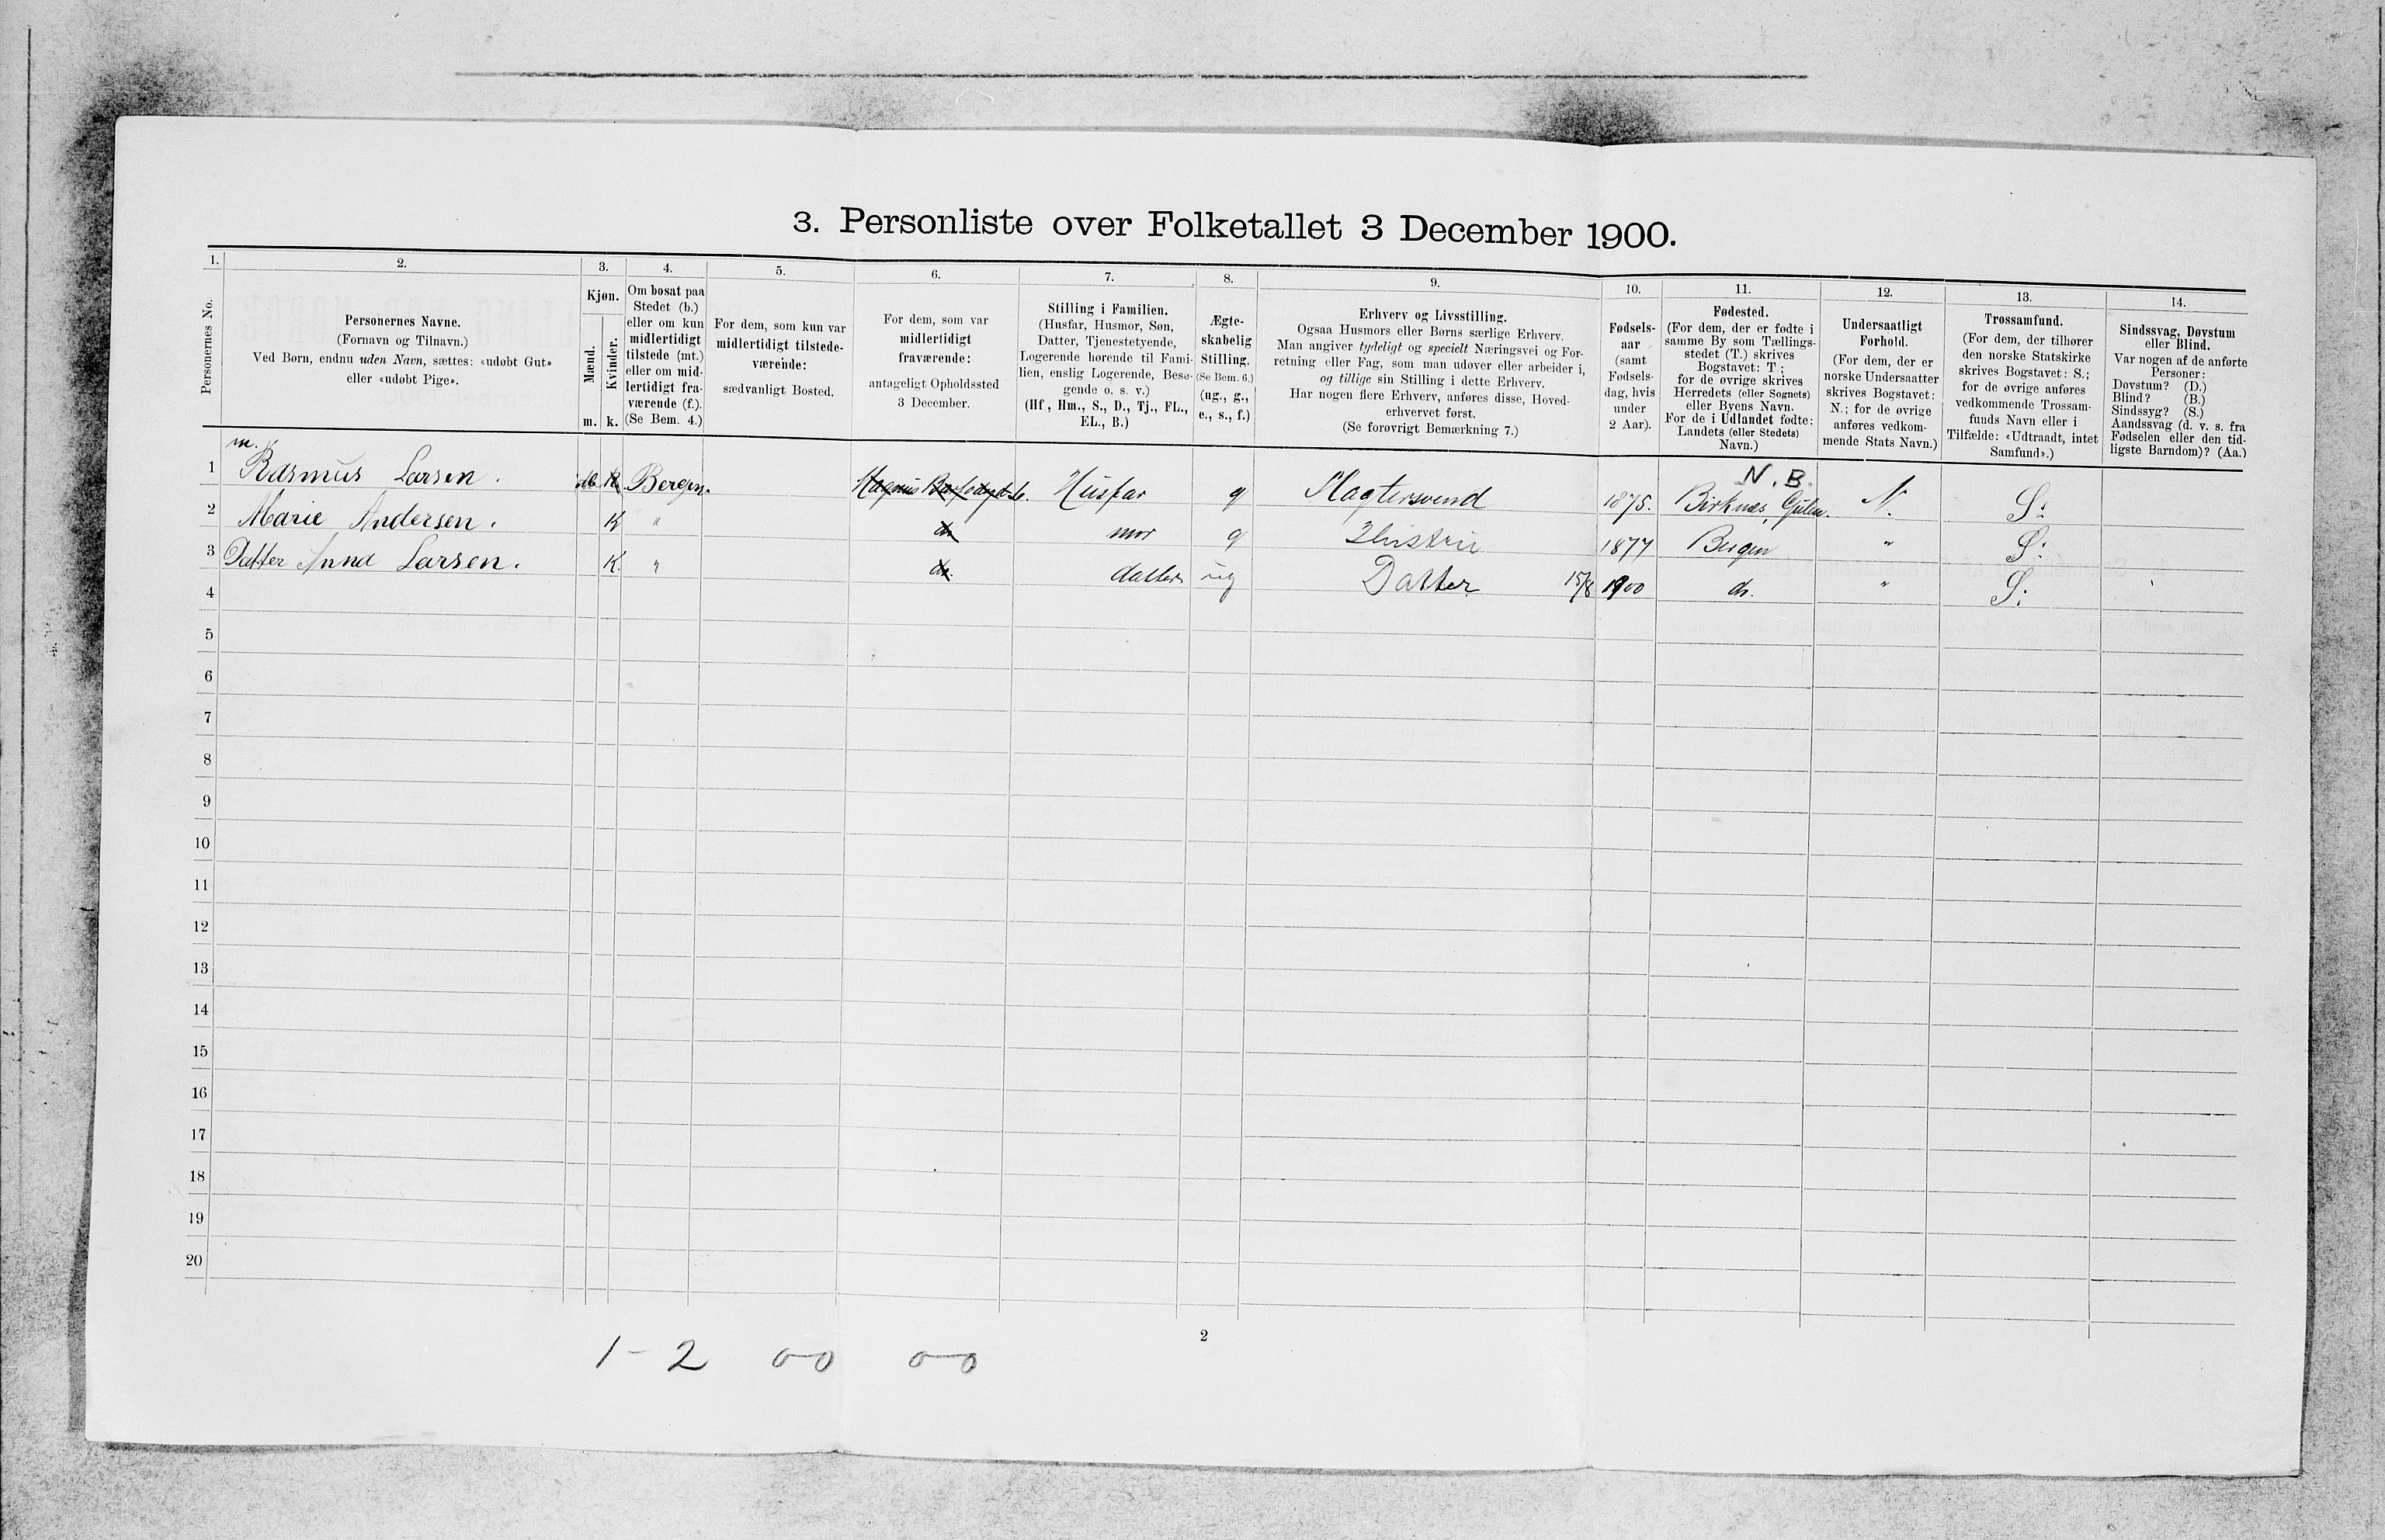 3. Personliste over Folketallet 3 December 1900.
1. 2. 3. 4. 5. 6. 7. 8. 9. 10. 11. 12. 13. 14.
Personernes No.
Personernes Navne.
(Fornavn og Tilnavn.)
Ved Børn, endnu uden Navn, sættes: «udøbt Gut»
eller «udøbt Pige».
Kjøn.
Mænd.
Kvinder.
m. k.
Om bosat paa
Stedet (b.)
eller om kun
midlertidigt
tilstede (mt.)
eller om mid-
lertidigt fra-
værende (f.).
(Se Bem. 4.)
For dem, som kun var
midlertidigt tilstede-
værende:
sædvanligt Bosted.
For dem, som var
midlertidigt
fraværende:
antageligt Opholdssted
3 December.
Stilling i Familien.
(Husfar, Husmor, Søn,
Datter, Tjenestetyende,
Logerende hørende til Fami-
lien, enslig Logerende, Besø-
gende o. s. v.)
(Hf, Hm., S., D., Tj., FL.,
EL., B.)
Ægte-
skabelig
Stilling.
(Se Bem. 6.)
(ug., g.,
e., s., f.)
Erhverv og Livsstilling.
Ogsaa Husmors eller Børns særlige Erhverv.
Man angiver tydeligt og specielt Næringsvei og For-
retning eller Fag, som man udøver eller arbeider i,
og tillige sin Stilling i dette Erhverv.
Har nogen flere Erhverv, anføres disse, Hoved-
erhvervet først.
(Se forøvrigt Bemærkning 7.)
Fødsels-
aar
(samt
Fødsels-
dag, hvis
under
2 Aar).
Fødested.
(For dem, der er fødte i
samme By som Tællings-
stedet (T.) skrives
Bogstavet: T.;
for de øvrige skrives
Herredets (eller Sognets)
eller Byens Navn.
For de i Udlandet fødte:
Landets (eller Stedets)
Navn.)
Undersaatligt
Forhold.
(For dem, der er
norske Undersaatter
skrives Bogstavet:
N.; for de øvrige
anføres vedkom-
mende Stats Navn.)
Trossamfund.
(For dem, der tilhører
den norske Statskirke
skrives Bogstavet: S.;
for de øvrige anføres
vedkommende Trossam-
funds Navn eller i
Tilfælde: «Udtraadt, intet
Samfund».)
Sindssvag, Døvstum
eller Blind.
Var nogen af de anførte
Personer:
Døvstum? (D.)
Blind? (B.)
Sindssyg? (S.)
Aandssvag (d. v. s. fra
Fødselen eller den tid-
ligste Barndom)? (Aa.)
m. k
N. B.
1 Rasmus Larsen. Bergen. Husfar g Slagtersvend 1875. Birknes, Gulen. N. S.
2 Marie Andersen. K " do mor g Hustru 1877 Bergen " S.
3 Datter Anna Larsen. K. " do. datter ug Datter 15/8 1900 do. " S.
4
5
6
7
8
9
10
11
12
13
14
15
16
17
18
19
20
2
1 - 2 0-0 0-0